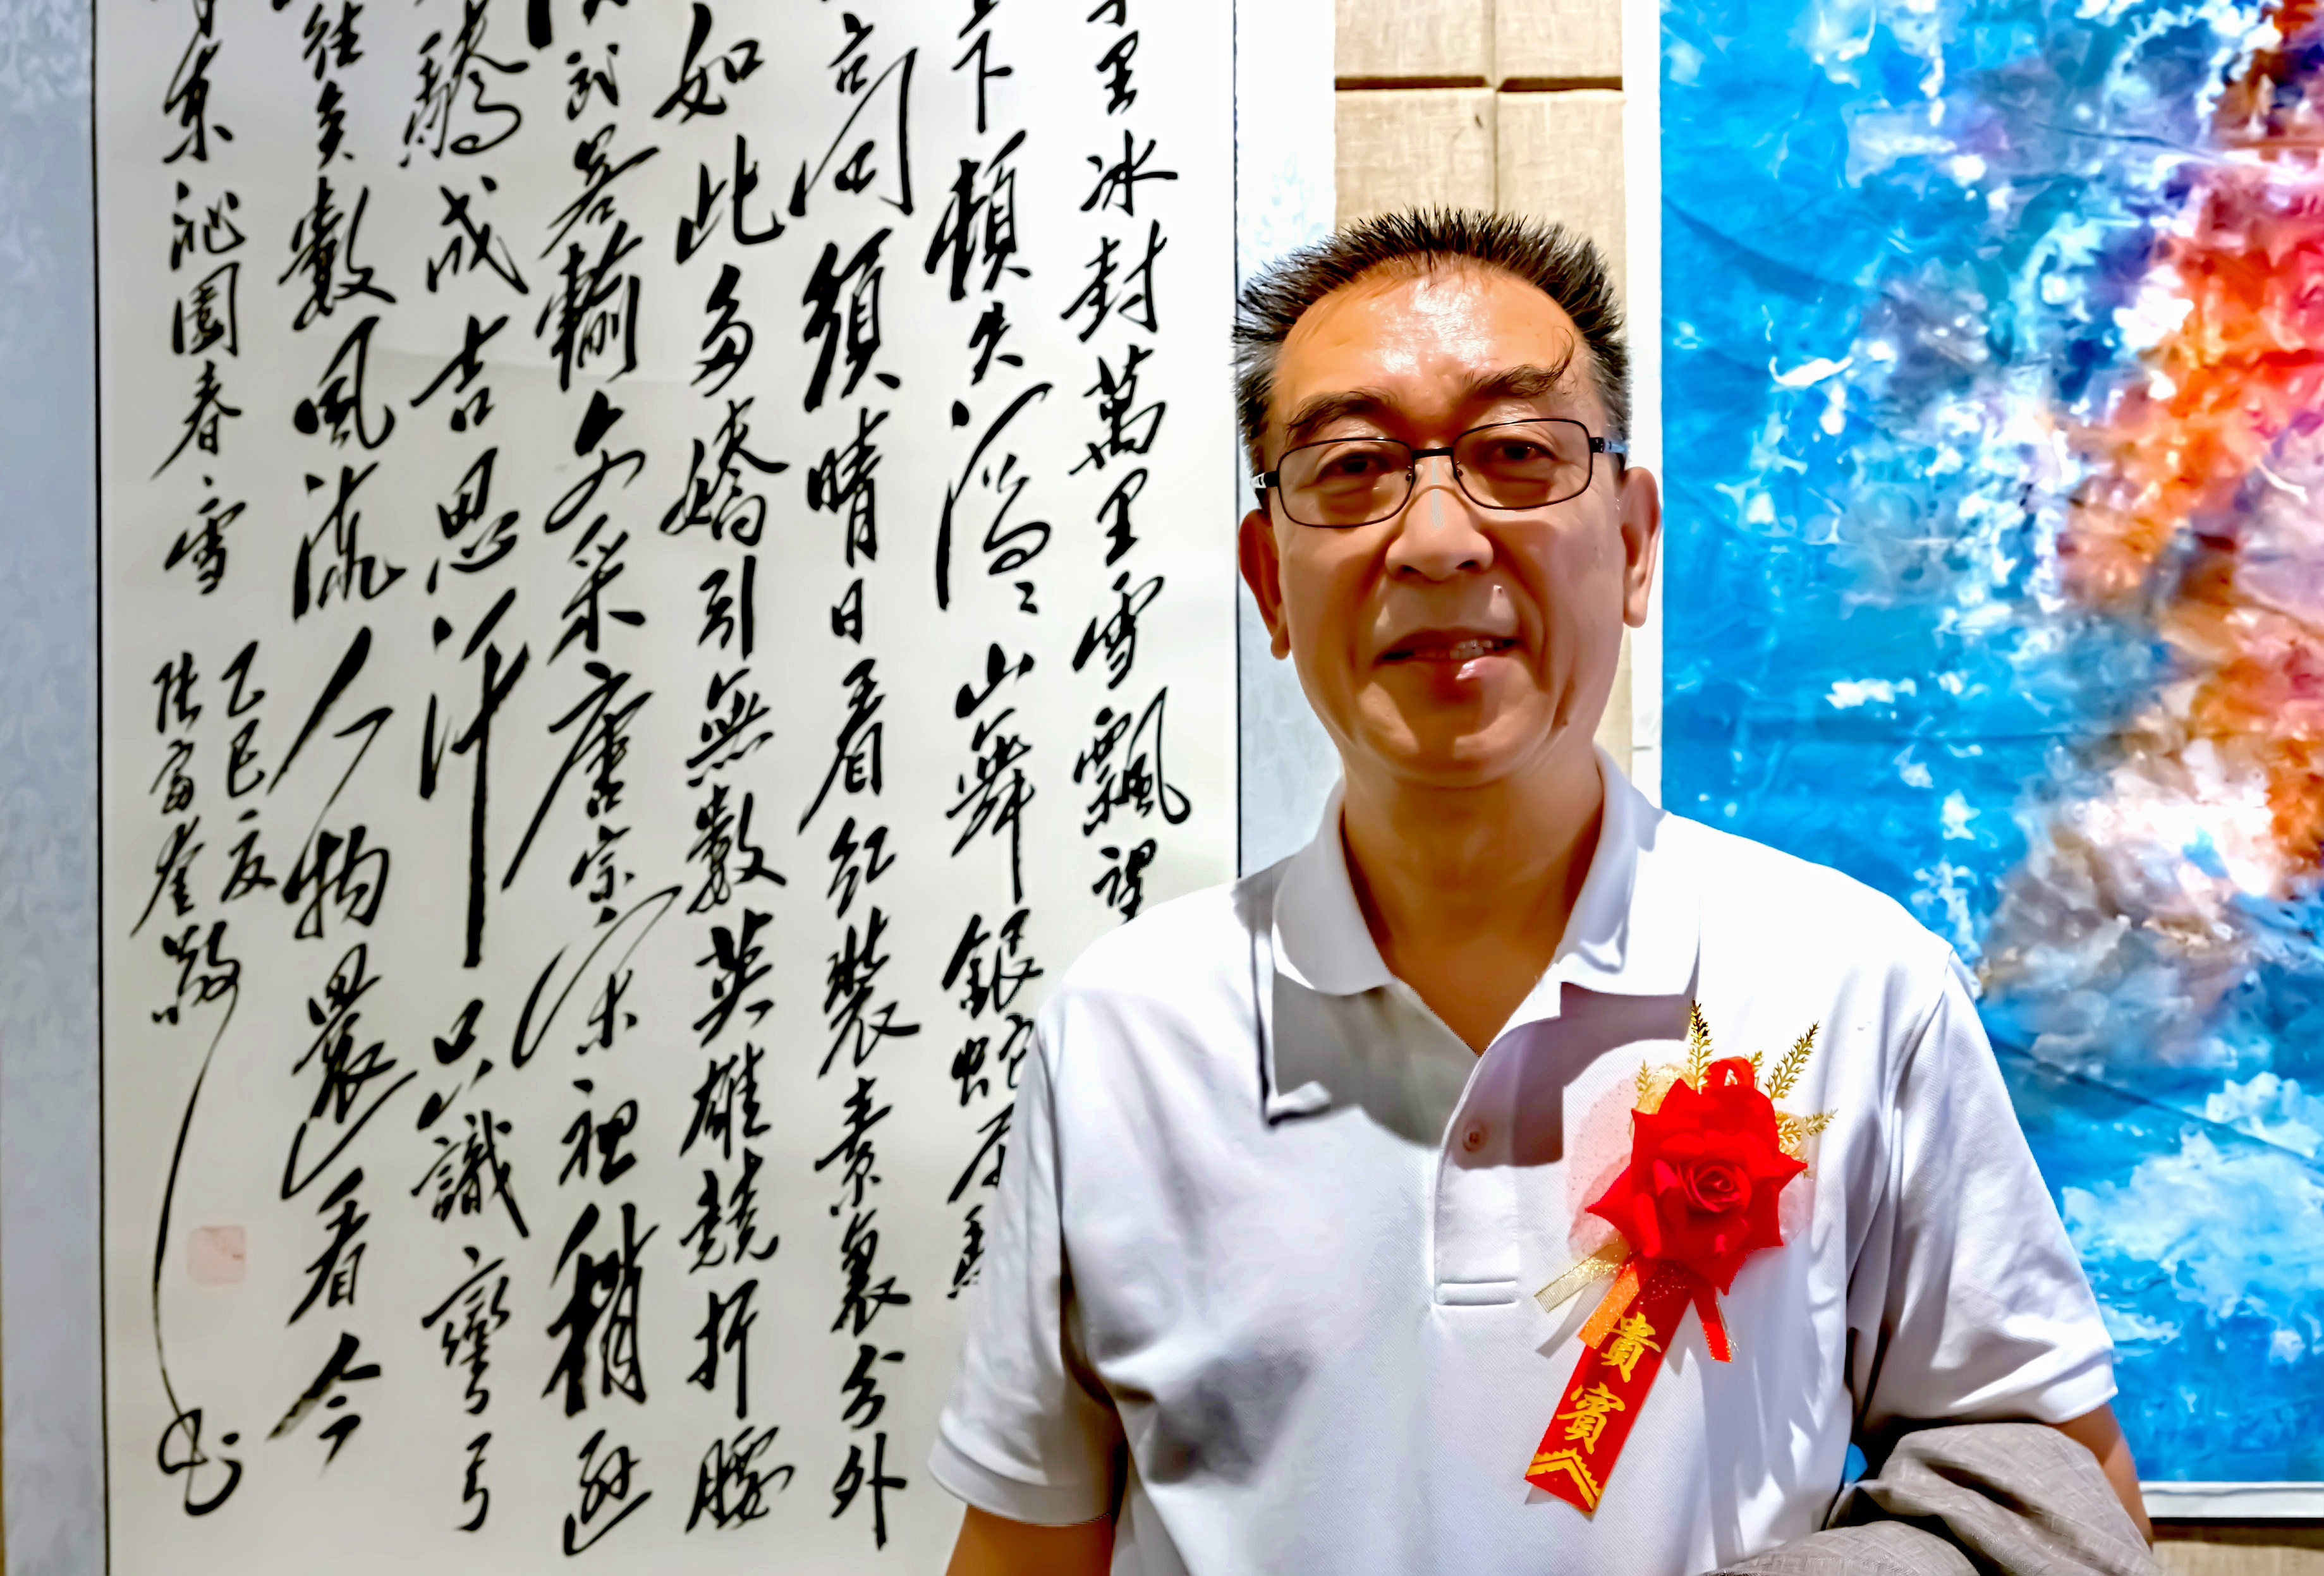 里冰封萬里雪飄望
下頓失滔〻山舞銀蛇原
高須晴日看紅裝素裹分外
如此多嬌引無數英雄競折腰
武略輸文采唐宗宋祖稍遜
驕成吉思汗只識彎弓
往矣數風流人物還看今
東沁園春·雪
乙巳夏
張富奎敬書
貴賓